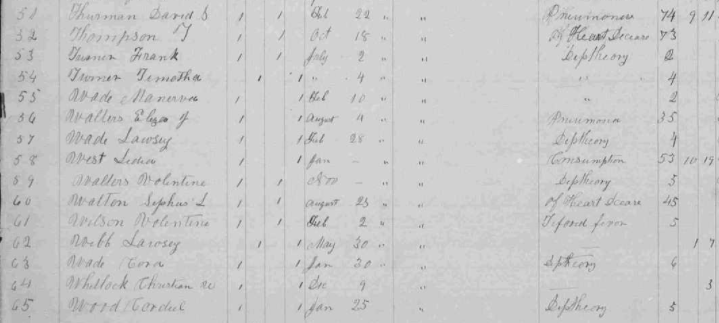 51 Thurman David S 1 1 Feb 22 " " Pneuimonia 74 9 11
52 Thompson T 1 1 Oct 18 " " Of Heart Deceare 73
53 Turner Frank 1 1 July 2 " " Diptheory 2
54 Turner Timotha 1 1 " 4 " " " 4
55 Wade Manerva 1 1 Feb 10 " " " 2
56 Walters Eliza J 1 1 August 9 " " Pneumona 35
57 Wade Lawsey 1 1 Feb 28 " " Diptheory 4
58 West Lidia 1 1 Jan – " " Consumption 53 10 19
59 Walters Volentine 1 1 Nov – " " Diptheory 5
60 Walton Sephus L 1 1 August 23 " " Of Heart Deceare 45
61 Wilson Volentine 1 1 Feb 2 " " Tifoid fivor 5
62 Webb Lawsey 1 1 May 30 " " — 1 7
63 Wade Cora 1 1 Jan 30 " " Diptheory 6
64 Whitlock Christian 1 1 Dec 9 " — 3
65 Wood Cordiel 1 1 Jan 25 " Diptheory 5